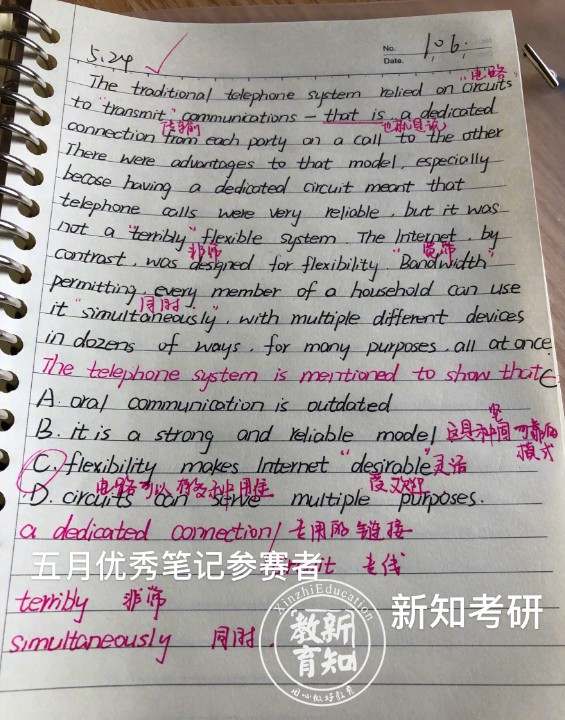 5.24
No.
Date.
1.06.
The traditional telephone system relied on "circuits
电路
to "transmit" communications – that is, a dedicated
传输
也就是说
connection from each party on a call to the other
There were advantages to that model, especially
becose having a dedicated circuit meant that
telephone calls were very reliable, but it was
not a "terribly" flexible system. The Internet, by
非常
宽带
contrast, was designed for flexibility. "Bandwidth"
permitting, every member of a household can use
同时
it "simultaneously", with multiple different devices
in dozens of ways, for many purposes, all at once.
The telephone system is mentioned to show that C
A. oral communication is outdated
B. it is a strong and reliable model 这是种可靠的
模式
C. flexibility makes Internet "desirable" 灵活
电路可以有多种用途
受欢迎
D. circuits can serve multiple purposes.
a dedicated connection / 专用的链接
五月优秀笔记参赛者
专线
terribly 非常
新知考研
simultaneously 同时.
XinzhiEducation
新知教育
用心做好教育